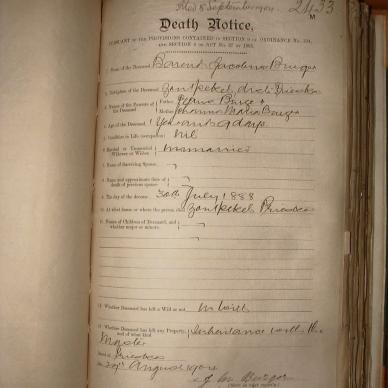 Filed 8 September 1904 2433
M
Death Notice,
PURSUANT TO THE PROVISIONS CONTAINED IN SECTION 9 OF ORDINANCE No. 104,
AND SECTION 2 OF ACT No. 27 OF 1885.
1. Name of the Deceased Barend Jacobus Burger
2. Birthplace of the Deceased Zoutpekel, dist. Prieska
3. Names of the Parents of the Deceased Father
Mother Johanna Maria Burger
4. Age of the Deceased 1 Year and 9 days
5. Condition in Life (occupation) Nil
6. Married or Unmarried Widower or Widow Unmarried
7. Name of Surviving Spouse
8. Name and approximate date of death of previous spouse
9. The day of the decease 30th July 1888
10. At what house or where the person died Zoutpekel Prieska
11. Names of Children of Deceased, and whether major or minors.
12. Whether Deceased has left a Will or not no Will
13. Whether Deceased has left any Property, and of what kind Inheritance with the
Master
Dated at Prieska
August 1904
Burger